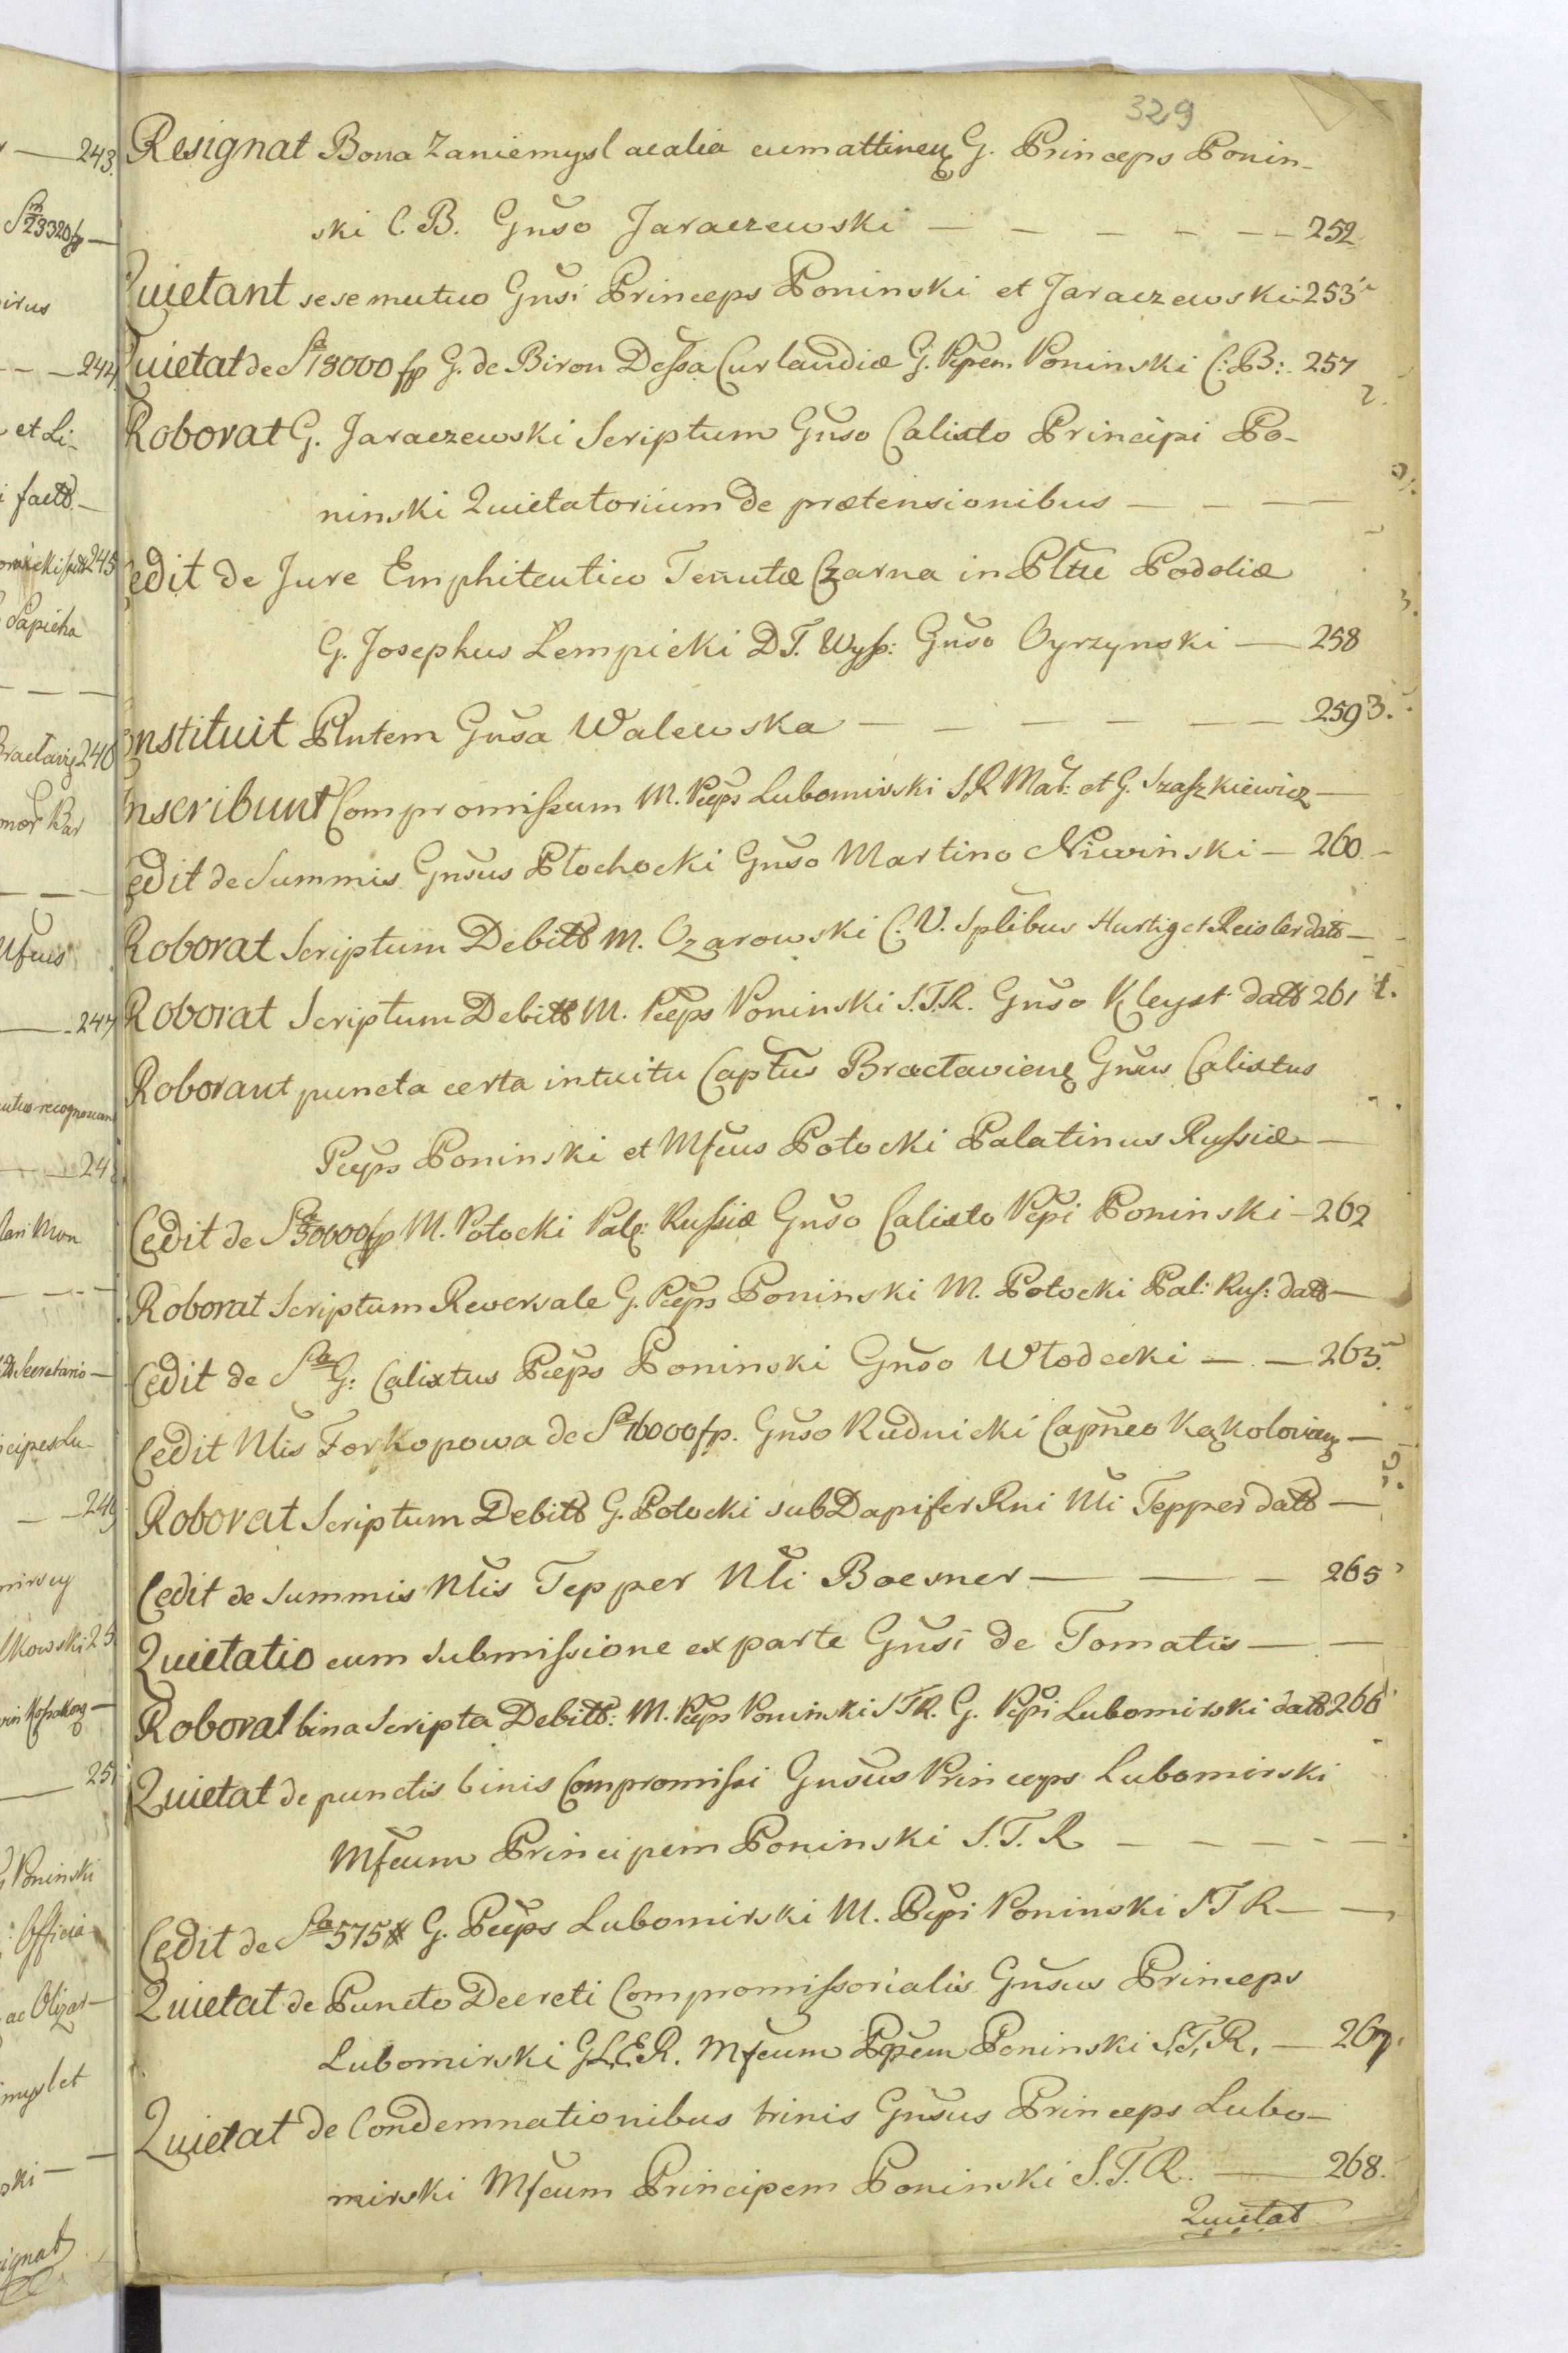 329
Resignat Bona Zaniemysl acalia cum attinen G. Princeps Ponin-
ski C. B. Gnso Jaraczewski — — — — — 252
Quietant sese mutuo Gnsi Princeps Poninski et Jaraczewski 253
Quietat de Sa 18000 fp G. de Biron Dessa Curlandiæ G. Ppem Poninski C: B: 257
Roborat G. Jaraczewski Scriptum Gnso Calixto Principi Po-
ninski Quietatorium de prætensionibus — — —
Cedit de Jure Emphiteutico Tenutæ Czarna in Pltu Podoliæ
G. Josephus Lempicki D T. Wyss: Gnso Oyrzynski — 258
Constituit Plntem Gnsa Walewska — — — — — — 259
Inscribunt Compromissum M. Pceps Lubomirski S R Mat: et G. Szaszkiewicz —
Cedit de Summis Gnsus Płochocki Gnso Martino Niwinski — 260
Roborat Scriptum Debiti M. Ozarowski C. V. Splibus Hurtig et Reisler dat —
Roborat Scriptum Debiti M. Pceps Poninski S.T.R. Gnso Kleyst dat 261
Roborant puncta certa intuitu Captus Bractavien Gnsus Calixtus
Pceps Poninski et Mfcus Potocki Palatinus Russiæ —
Cedit de Sa 30000 fp M. Potocki Pal: Russiæ Gnso Calixto Pcpi Poninski — 262
Roborat Scriptum Reversale G. Pceps Poninski M. Potocki Pal: Rus: dat —
Cedit de Sa G: Calixtus Pceps Poninski Gnso Włodecki — — 263
Cedit Nlis Forkopowa de Sa 16000 fp. Gnso Rudnicki Capneo Kąkolovien —
Roborat Scriptum Debiti G. Potocki sub Dapifer Rni Nli Tepper dat —
Cedit de Summis Nlis Tepper Nli Boesner — — — 265
Quietatio cum submissione ex parte Gnsi de Tomatis — —
Roborat bina Scripta Debiti: M. Pceps Poninski S T R. G. Pcpi Lubomirski dat 266
Quietat de punctis binis Compromissi Gnsus Princeps Lubomirski
Mfcum Principem Poninski S. T. R — — — — —
Cedit de Sa 575 # G. Pceps Lubomirski M. Pcpi Poninski S T R — —
Quietat de Puncto Decreti Compromissorialis Gnsus Princeps
Lubomirski G. L. E. R. Mfcum Ppem Poninski S. T. R. — 267.
Quietat de Condemnationibus trinis Gnsus Princeps Lubo-
mirski Mfcum Principem Poninski S. T. R. — 268.
Quietat